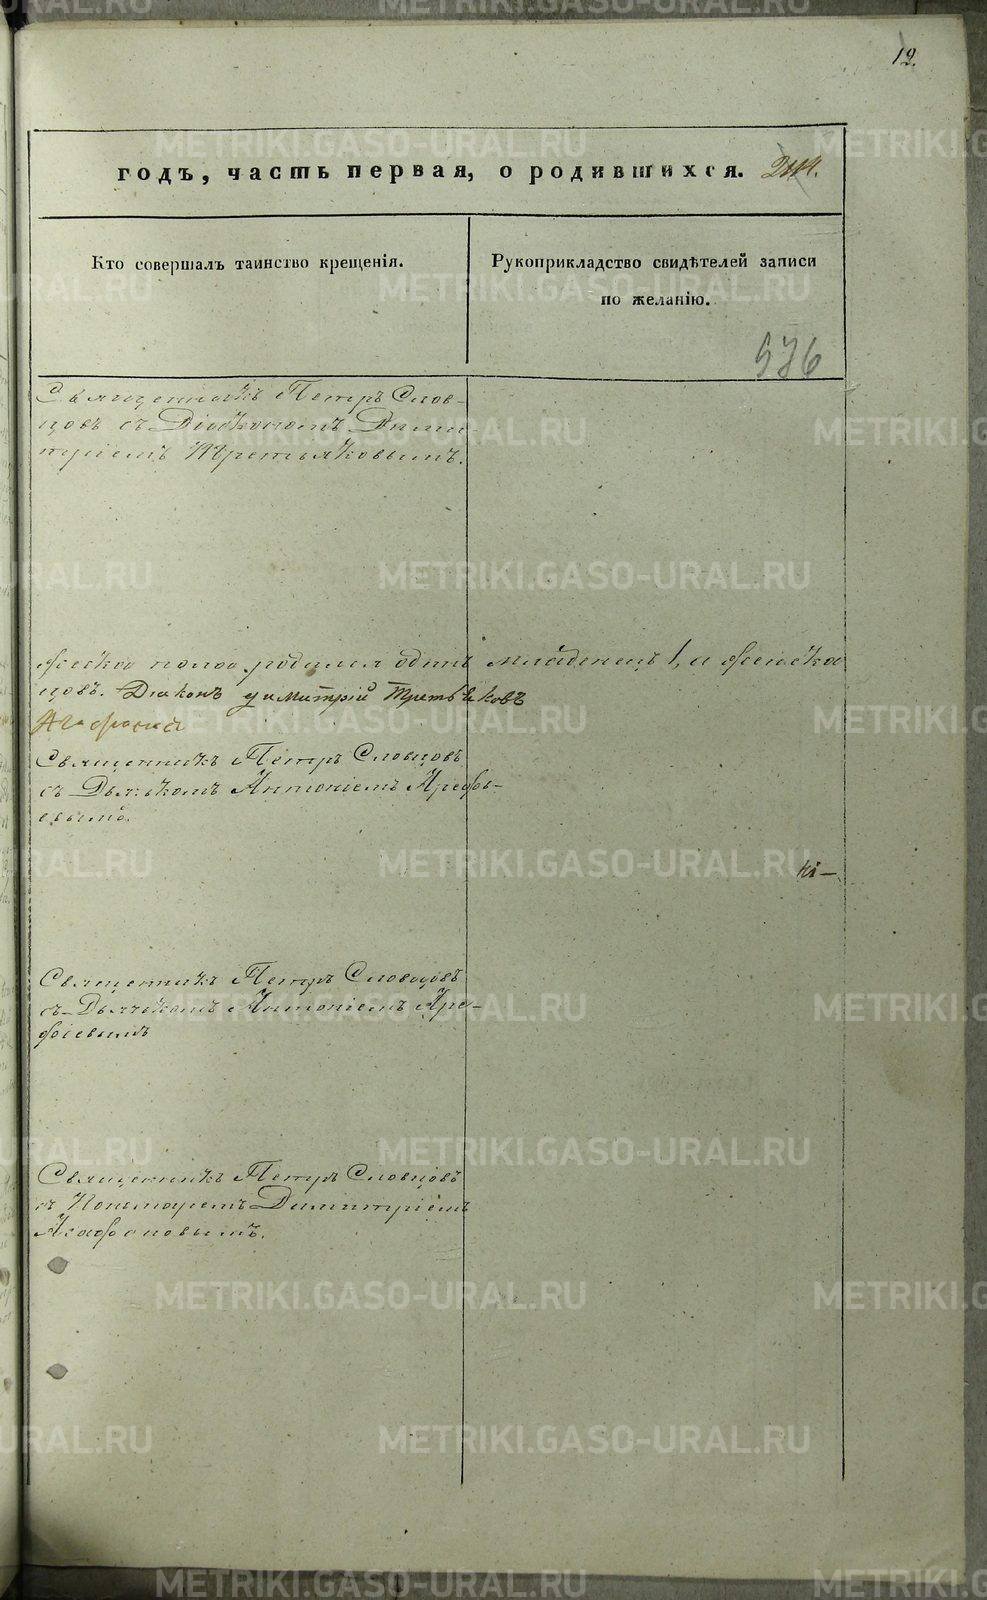 12.
годъ, часть первая, о родившихся.
Кто совершалъ таинство крещенія.
Рукоприкладство свидѣтелей записи
по желанію.
576
Священникъ Петръ Слов-
цовъ съ Діакономъ Дими-
тріемъ Третьяковымъ.
родился одинъ младенецъ 1, а женска
цовъ. Діаконъ Димитрій Третьяковъ
Священникъ Петръ Словцовъ
съ Дьячкомъ Антоніемъ Арефь-
евымъ.
кі-
Священникъ Петръ Словцовъ
съ Дьячкомъ Антоніемъ Аре-
фіевымъ
Священникъ Петръ Словцовъ
съ Пономаремъ Димитріемъ
Агафоновымъ.
METRIKI.GASO-URAL.RU